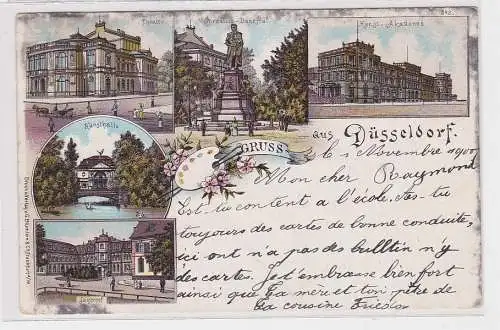 Theater.
Cornelius-Denkmal
Königl. Akademie
Kunsthalle
GRUSS
aus Düsseldorf.
le 1 Novembre 1900
Mon cher Raymond
Est-tu content a l'école, as-tu
toujours des cartes de bonne conduite,
ici ont n'a pas des bulltin n'y
des cartes. Jet embrasse bien fort
ainsi que ta mère et ton père de
ta cousine